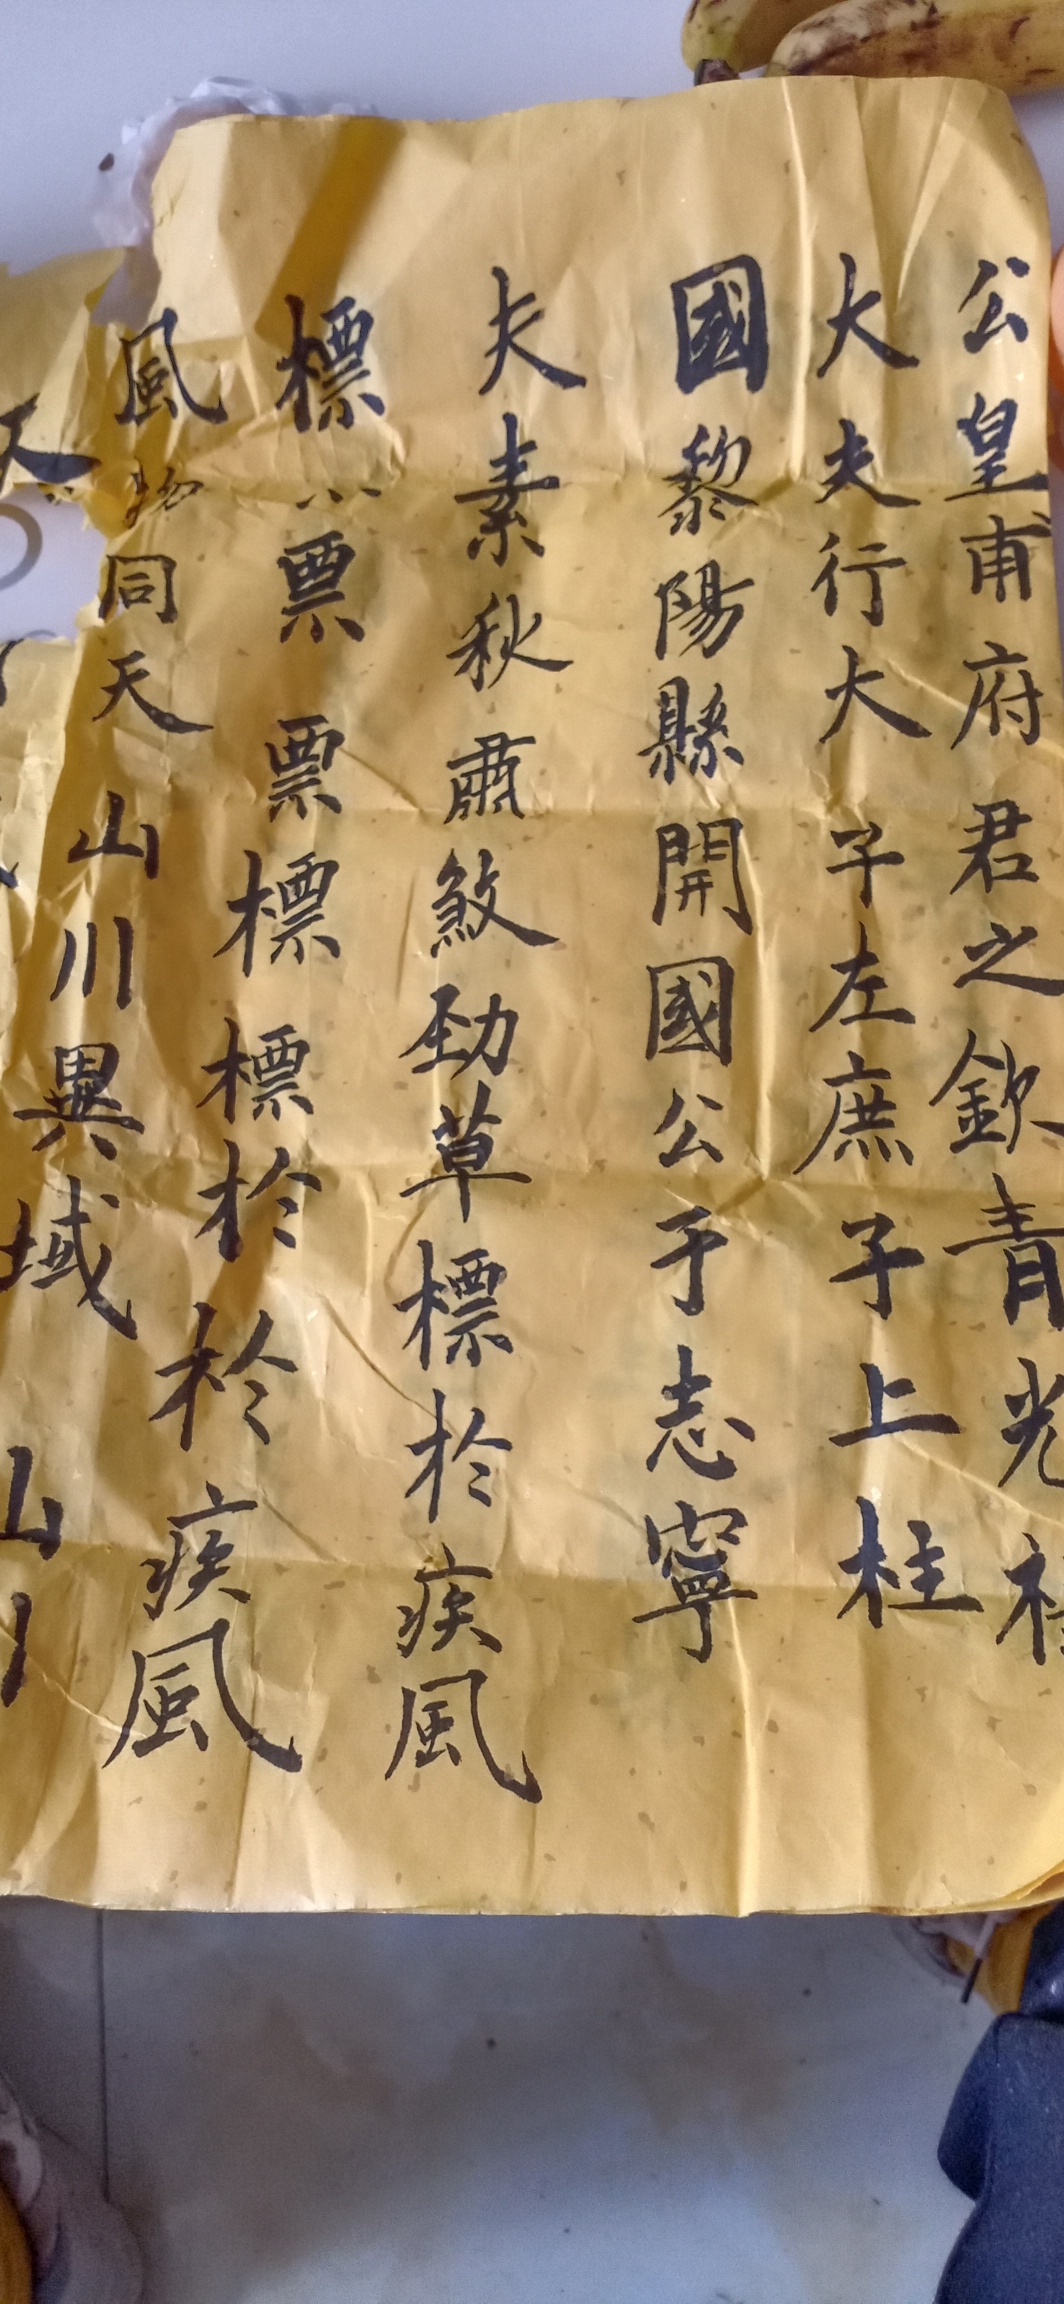 公皇甫府君之欽青光禄
大夫行大子左庶子上柱
國黎陽縣開國公于志寧
夫素秋肅煞勁草標於疾風
標票票標標於於疾風
風同天山川異域
天山川